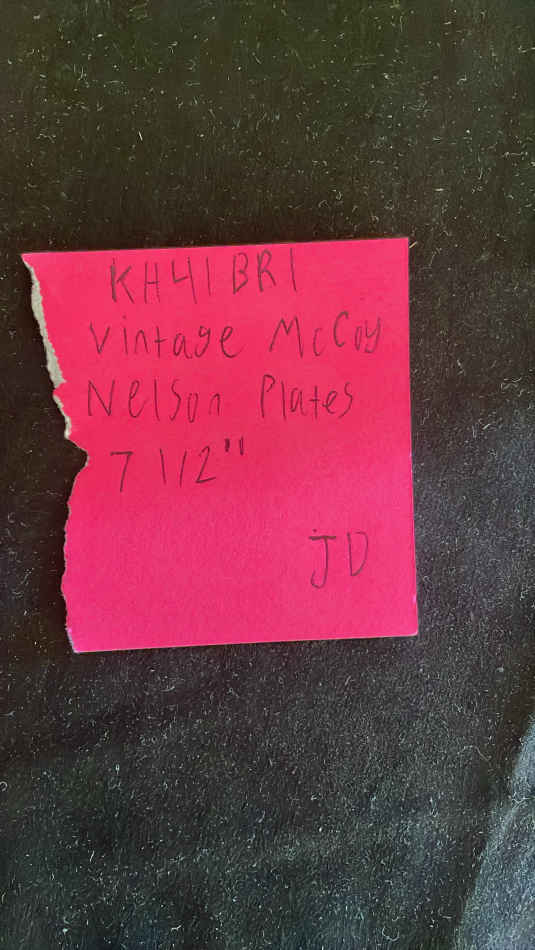 KH41BR1
Vintage McCoy
Nelson Plates
7 1/2"
JD